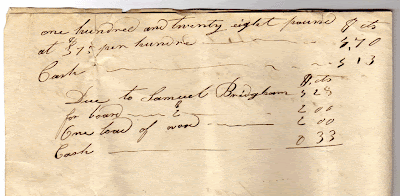 one hundred and twenty eight pound $ cts
at $ 7 per hundre 70
Cash 13
Due to Samuel Bridgham $ cts
for boan 2 00
One load of wood 2 00
Cash 0 33